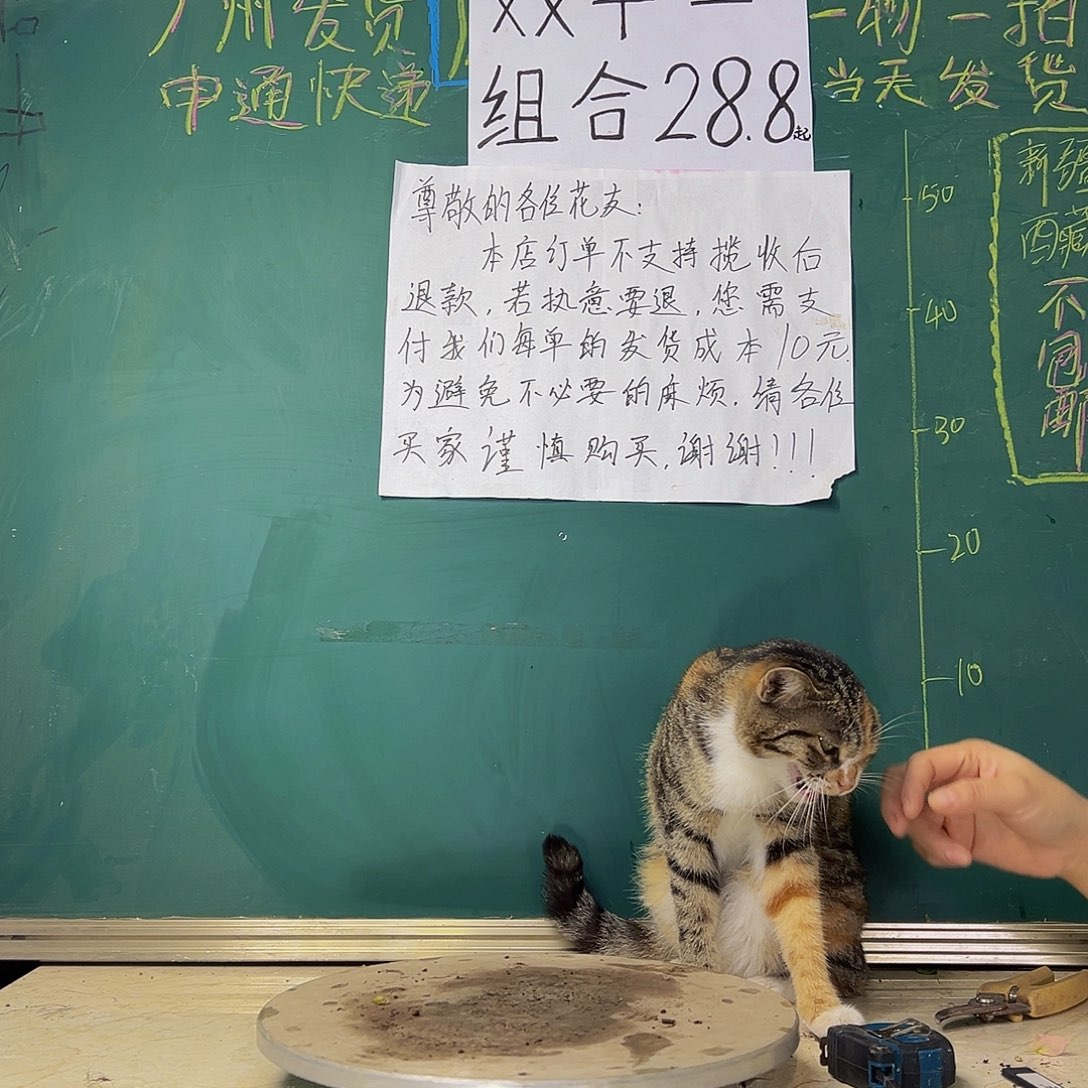 广州发货
申通快递
双十一
组合28.8起
一物一拍
当天发货
尊敬的各位花友:
本店订单不支持揽收后
退款,若执意要退,您需支
付我们每单的发货成本10元
为避免不必要的麻烦.请各位
买家谨慎购买,谢谢!!!
50
40
30
20
10
新疆
西藏
不
同
邮